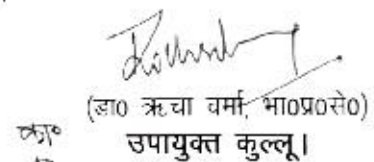 (डा० ऋचा वर्मा, भा०प्र०से०)
उपायुक्त कुल्लू।